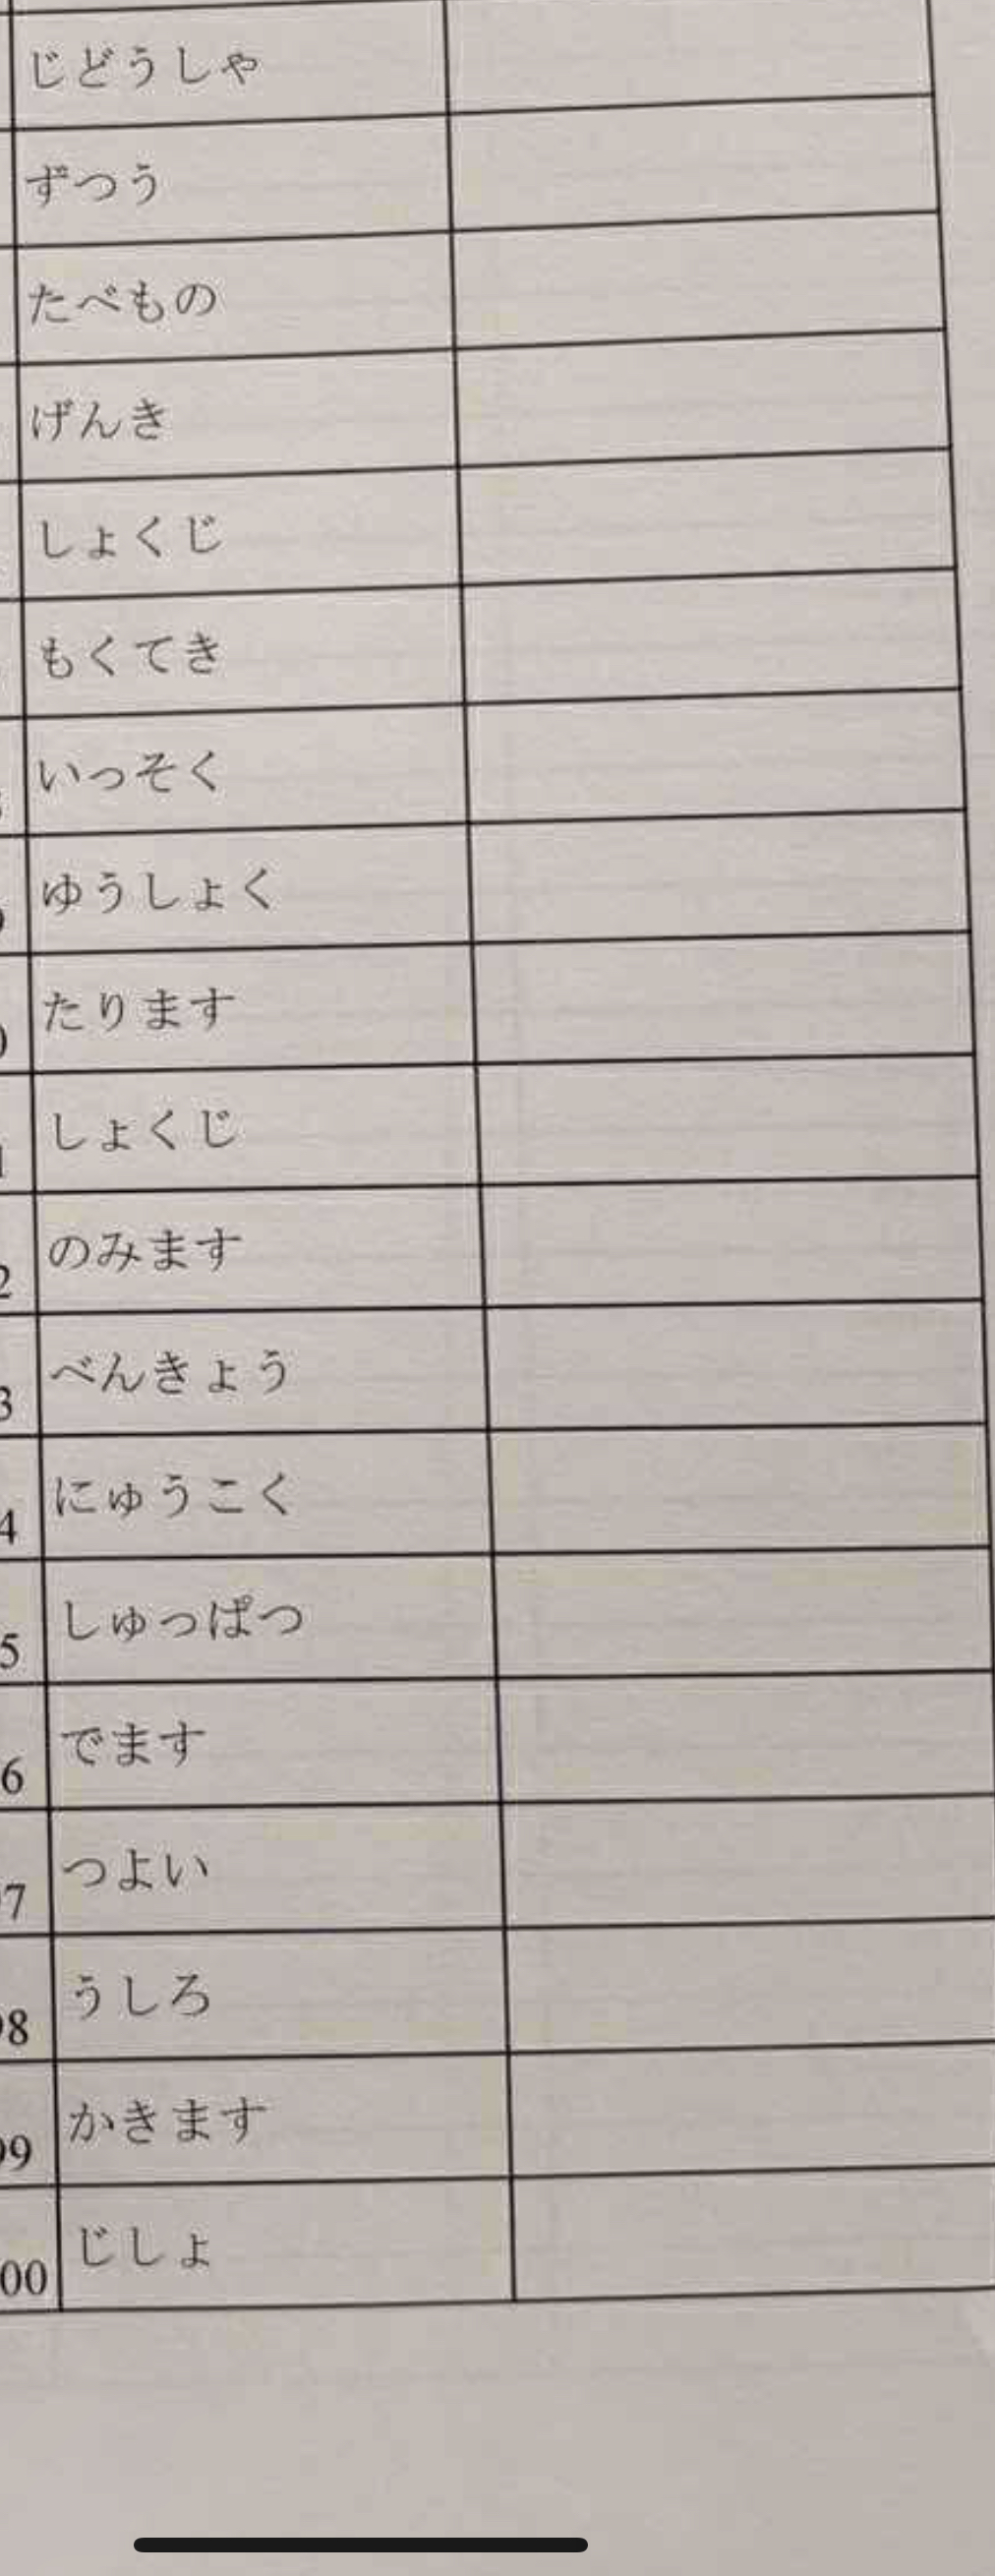 じどうしゃ
ずつう
たべもの
げんき
しょくじ
もくてき
いっそく
ゆうしょく
たります
しょくじ
2 のみます
3 べんきょう
4 にゅうこく
5 しゅっぱつ
6 でます
7 つよい
98 うしろ
99 かきます
00 じしょ